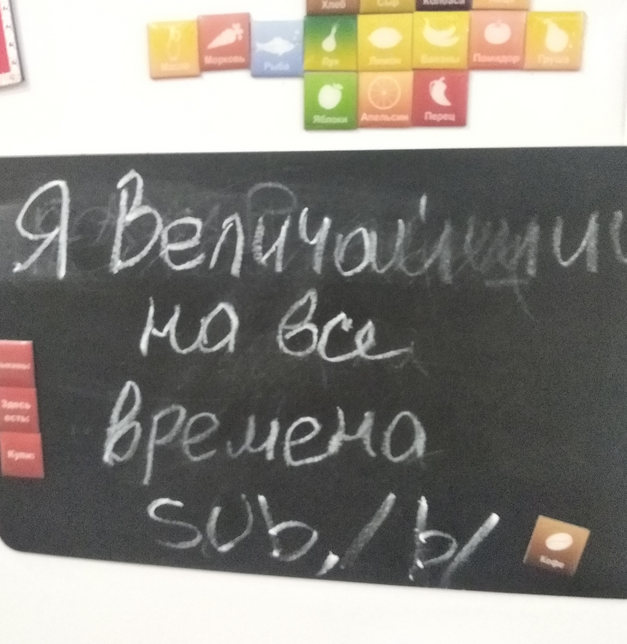 Хлеб Сыр Колбаса
Морковь Рыба Лук Лимон Бананы Помидор Груша
Яблоки Апельсин Перец
Я Величайший
на все
времена
Здесь
есть:
Купи:
sub, /b/
Кофе